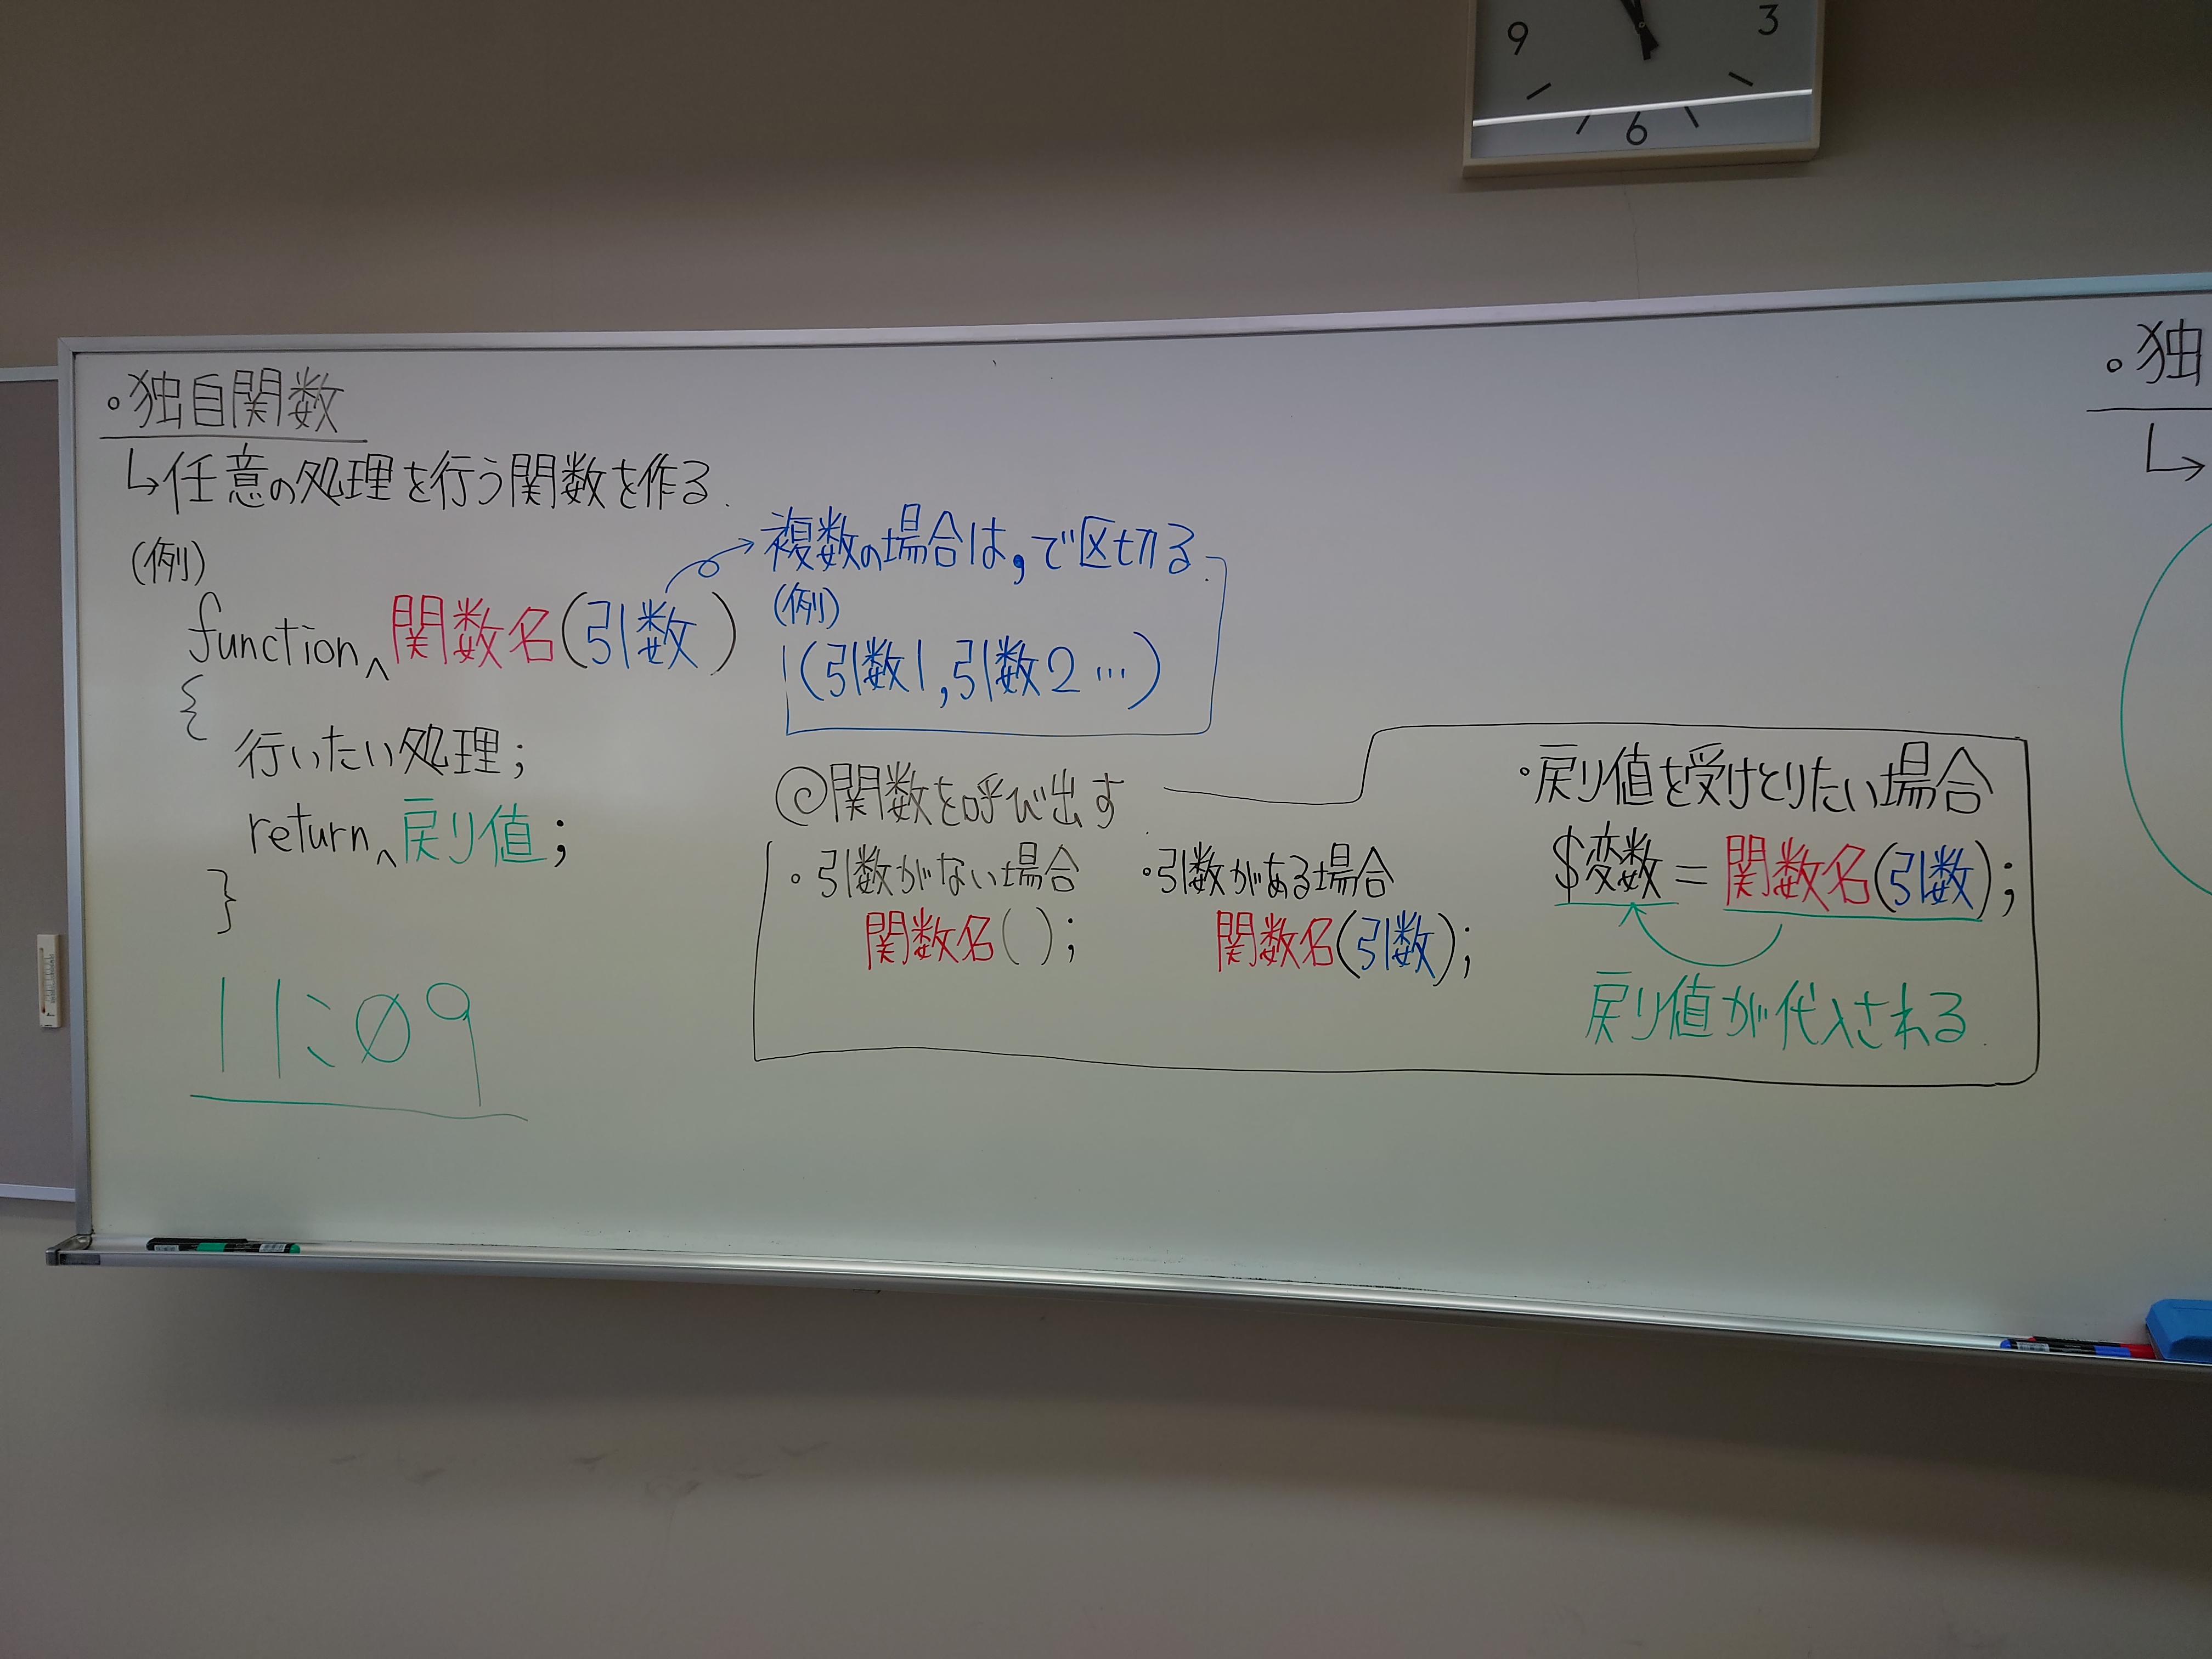 9 3
6
。独自関数
↳任意の処理を行う関数を作る.
(例)
function^関数名(引数)
{
行いたい処理;
return^戻り値;
}
11:09
複数の場合は,で区切る.
(例)
(引数1,引数2…)
◎関数を呼び出す.
・引数がない場合
関数名();
・引数がある場合
関数名(引数);
・戻り値を受けとりたい場合
$変数=関数名(引数);
戻り値が代入される.
。独
↳